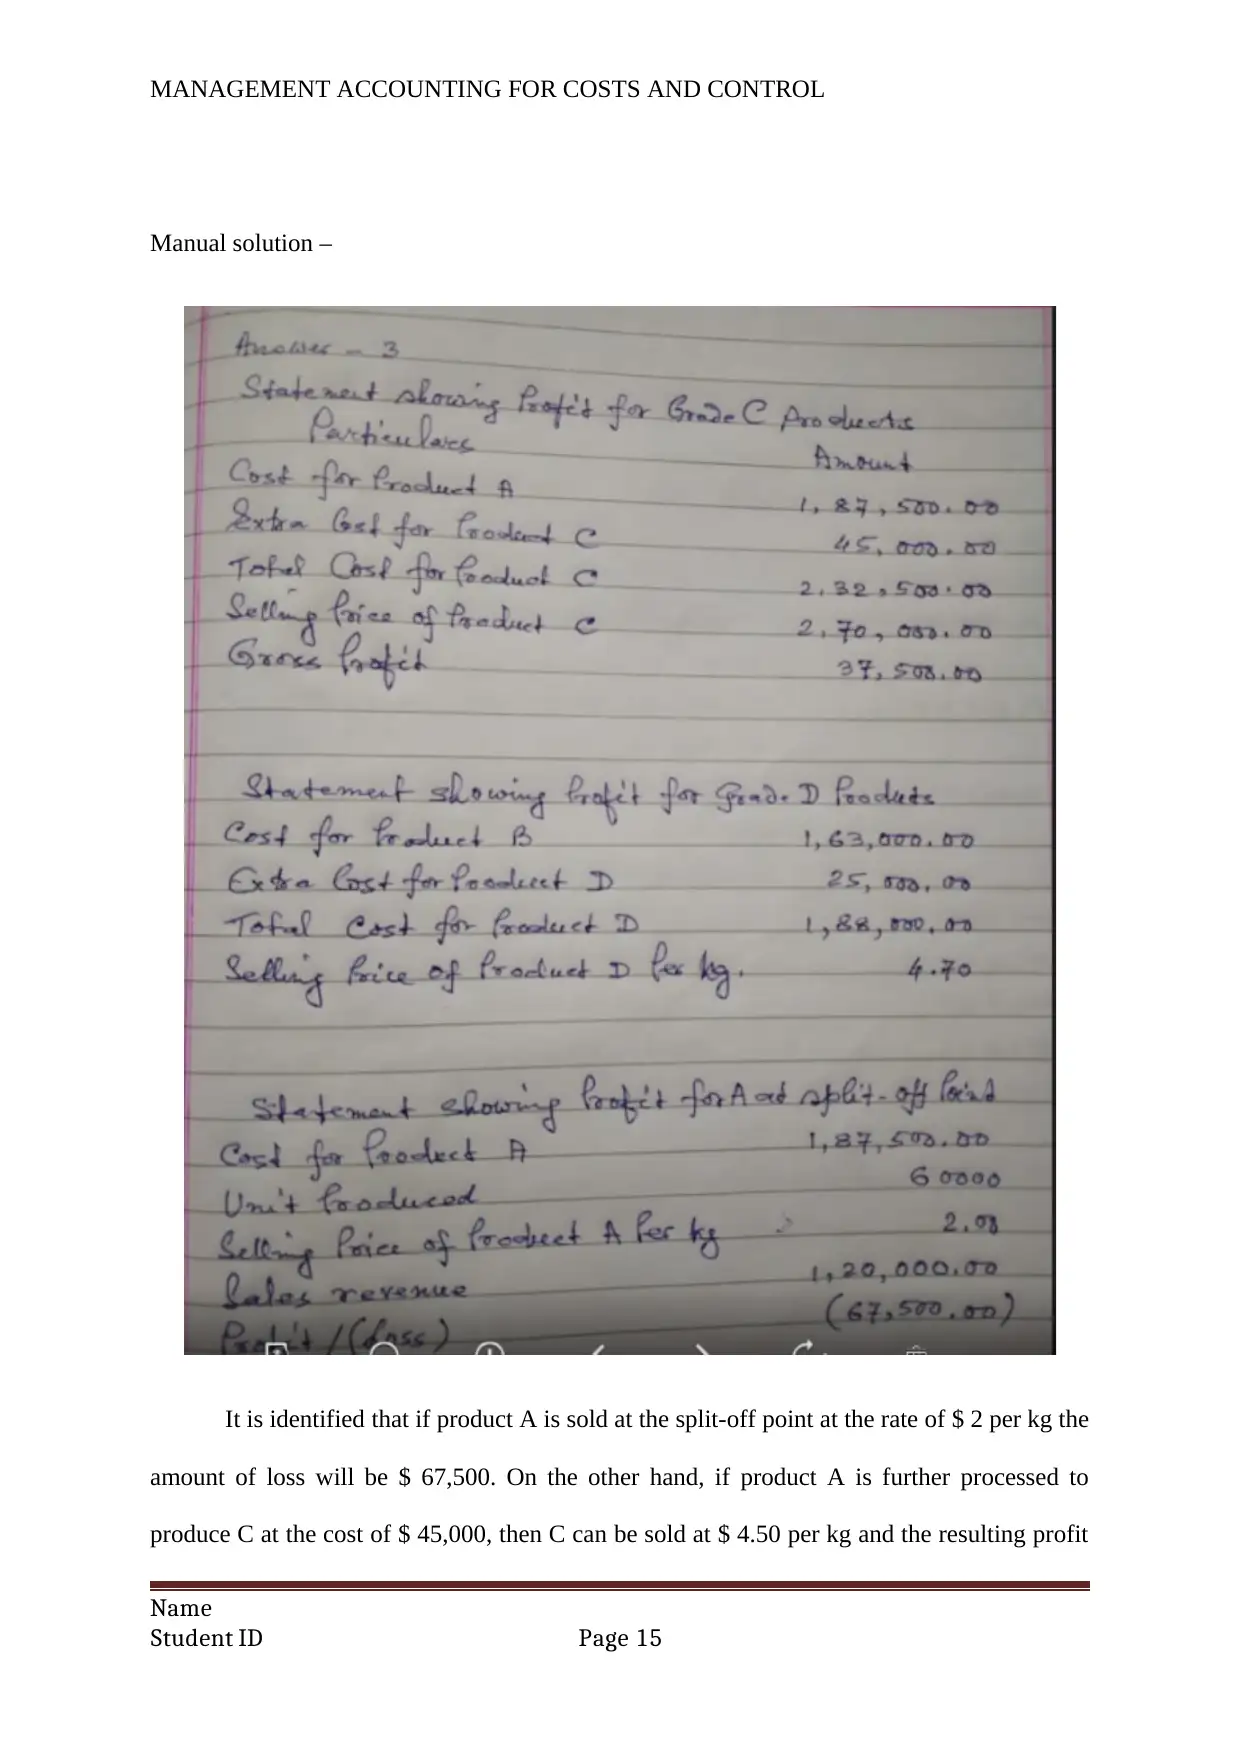 MANAGEMENT ACCOUNTING FOR COSTS AND CONTROL
Manual solution –
Answer - 3
Statement showing Profit for Grade C Products
Particulars Amount
Cost for Product A 1,87,500.00
Extra Cost for Product C 45,000.00
Total Cost for Product C 2,32,500.00
Selling Price of Product C 2,70,000.00
Gross Profit 37,500.00
Statement showing Profit for Grade D Products
Cost for Product B 1,63,000.00
Extra Cost for Product D 25,000.00
Total Cost for Product D 1,88,000.00
Selling Price of Product D Per kg. 4.70
Statement showing Profit for A at split-off Point
Cost for Product A 1,87,500.00
Unit Produced 60000
Selling Price of Product A Per kg
Sales revenue 1,20,000.00
Profit/(Loss) (67,500.00)
It is identified that if product A is sold at the split-off point at the rate of $ 2 per kg the
amount of loss will be $ 67,500. On the other hand, if product A is further processed to
produce C at the cost of $ 45,000, then C can be sold at $ 4.50 per kg and the resulting profit
Name
Student ID Page 15